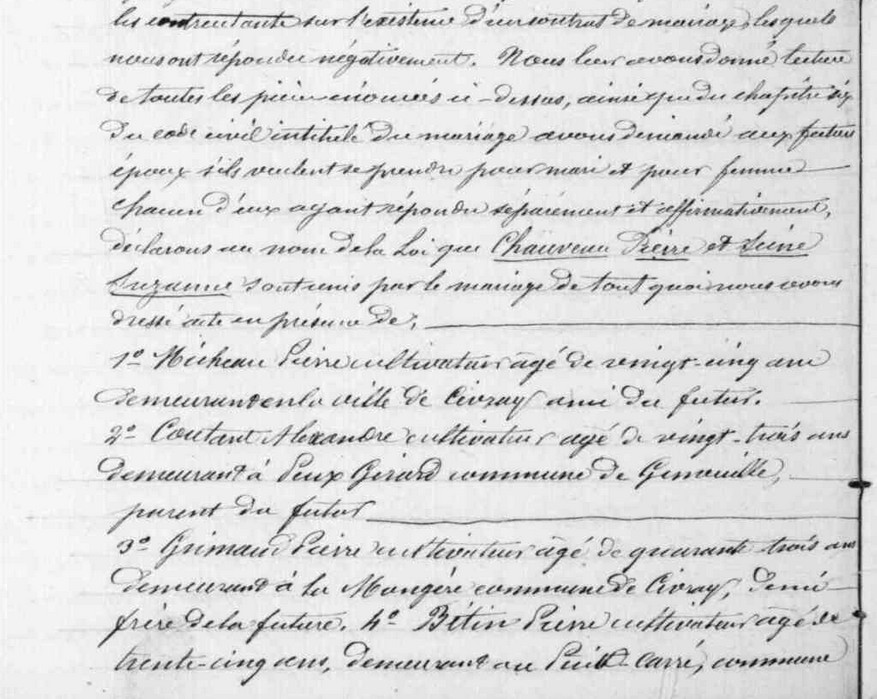 les contractants sur l'existence d'un contrat de mariage, lesquels
nous ont répondu négativement. Nous leur avons donné lecture
de toutes les pièces énoncées ci-dessus, ainsi que du chapitre six
du code civil intitulé du mariage avons demandé aux futurs
époux s'ils veulent se prendre pour mari et pour femme
chacun d'eux ayant répondu séparément et affirmativement,
déclarons au nom de la Loi que Chauveau Pierre et
Suzanne sont unis par le mariage de tout quoi nous avons
dressé acte en présence de,
1º Micheau Pierre cultivateur agé de veingt-cinq ans
demeurant en la ville de Civray ami du futur.
2º Coutant Alexandre cultivateur agé de vingt-trois ans
demeurant à Peux Girard commune de Genouillé,
parent du futur
3º Grimaud Pierre cultivateur agé de quarante trois ans
demeurant à la Mongère commune de Civray, demi
frère de la future. 4º Bétin Pierre cultivateur agé de
trente-cinq ans, demeurant au Carré, commune